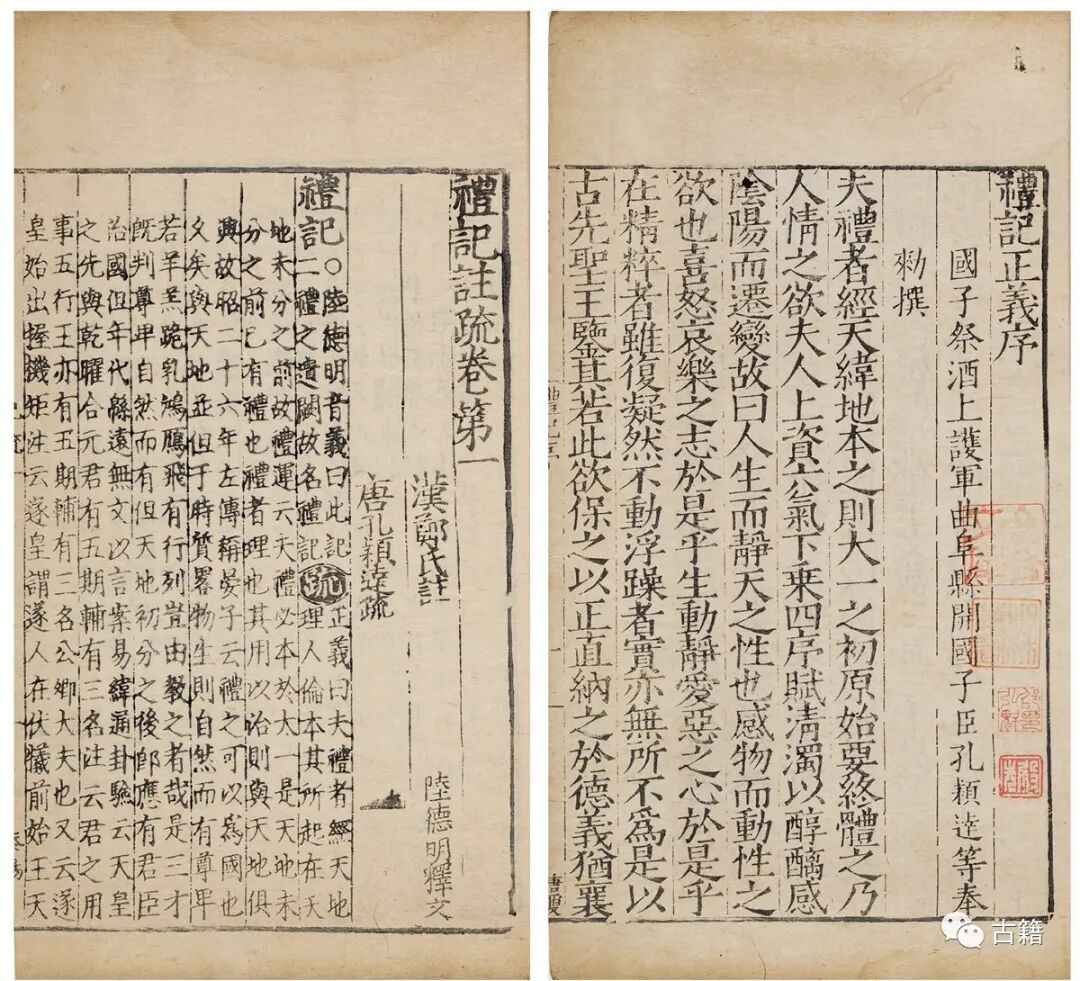 禮記正義序
國子祭酒上護軍曲阜縣開國子臣孔穎達等奉
勑撰
夫禮者經天緯地本之則大一之初原始要終體之乃
人情之欲夫人上資六氣下乘四序賦清濁以醇醨感
陰陽而遷變故曰人生而靜天之性也感物而動性之
欲也喜怒哀樂之志於是乎生動靜愛惡之心於是乎
在精粹者雖復凝然不動浮躁者實亦無所不為是以
古先聖王鑒其若此欲保之以正直納之於德義猶襄
禮記註疏卷第一
漢鄭氏註
唐孔穎達疏
陸德明釋文
禮記○陸德明音義曰此記
二禮之遺闕故名禮記疏正義曰夫禮者經天地
理人倫本其所起在天
地未分之前故禮運云夫禮必本於大一是天地未
分之前已有禮也禮者理也其用以治則與天地俱
興故昭二十六年左傳稱晏子云禮之可以為國也
久矣與天地並但于時質畧物生則自然而有尊卑
若羊羔跪乳鴻鴈飛有行列豈由教之者哉是三才
旣判尊卑自然而有但天地初分之後即應有君臣
治國但年代緜遠無文以言案易緯通卦驗云天皇
之先與乾曜合元君有五期輔有三名注云君之用
事五行王亦有五期輔有三名公卿大夫也又云遂
皇始出握機矩注云遂皇謂遂人在伏犧前始王天
古籍